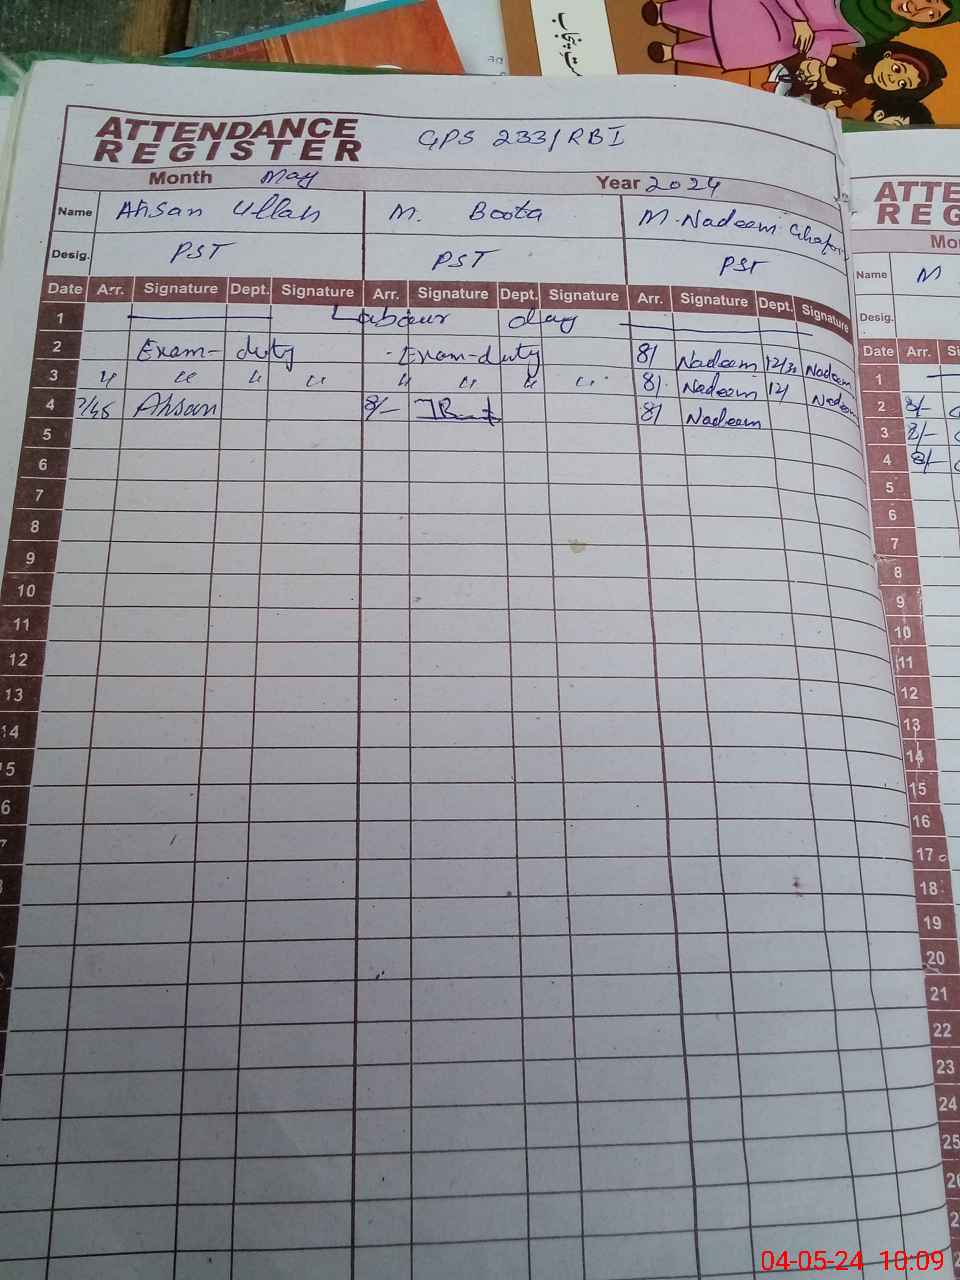 ATTENDANCE
REGISTER
GPS 233/RBI
Month May Year 2024
Name Ahsan Ullah M. Boota M. Nadeem Ghafoor
Desig. PST PST PST
Date Arr. Signature Dept. Signature Arr. Signature Dept. Signature Arr. Signature Dept. Signature
1 Labour day
2 Exam-duty Exam-duty 8/ Nadeem 12/30 Nadeem
3 " " " " " " " " 8/. Nadeem 12/ Nadeem
4 7/45 Ahsan 8/- 8/ Nadeem
5
6
7
8
9
10
11
12
13
14
5
6
7
ATTE
REG
Mo
Name M
Desig.
Date Arr. Si
1
2 8/-
3 8/-
4 8/-
5
6
7
8
9
10
11
12
13
14
15
16
17
18
19
20
21
22
23
24
25
2
2
04-05-24 10:09